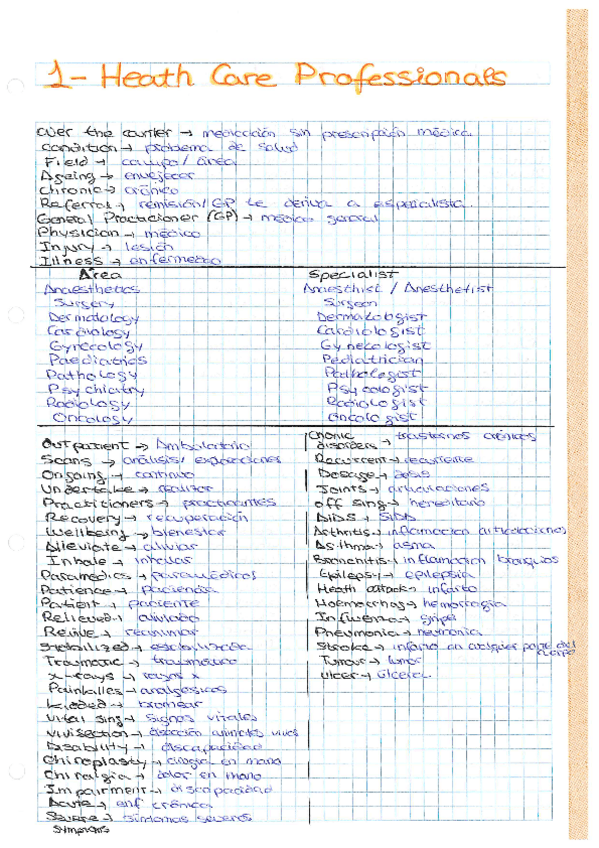 1- Heath Care Professionals
over the counter → medicación sin prescripción médica
Condition → problema de salud
Field → campo / área
Ageing → envejecer
Chronic → crónico
Referral → remisión / GP te deriva a especialista
General Practicioner (GP) → médico general
Physician → médico
Injury → lesión
Illness → enfermedad
Área Specialist
Anaesthetics Anaesthist / Anesthetist
Surgery Surgeon
Dermatology Dermatologist
Cardiology Cardiologist
Gynecology Gynecologist
Paediatrics Pediatrician
Pathology Pathologist
Psychiatry Psycologist
Radiology Radiologist
Oncology Oncologist
Outpatient → Ambulatorio
Scans → análisis / exploraciones
Ongoing → continuo
Undertake → realizar
Practitioners → practicantes
Recovery → recuperación
Wellbeing → bienestar
Alleviate → aliviar
Inhale → inhalar
Paramedics → paramédicos
Patience → paciencia
Patient → paciente
Relieved → aliviado
Revive → reanimar
Stabilized → estabilizado
Traumatic → traumático
x-rays → rayos x
Painkilles → analgésicos
kidded → bromear
vital sing → signos vitales
vivisection → disección animales vivos
Disability → discapacidad
Chiroplasty → cirugía en mano
Chiralgia → dolor en mano
Impairment → discapacidad
Acute → enf crónica
Severe → síntomas severos
symptoms
Chonic disorders → trastornos crónicos
Recurrent → recurrente
Dosage → dosis
Joints → articulaciones
off sing → hereditario
AIDS → SIDA
Arthritis → inflamacion articulaciones
Asthma → asma
Bronchitis → inflamacion bronquios
Epilepsi → epilepsia
Heath attack → infarto
Haemorrhag → hemorragia
Influenza → gripe
Pneumonia → neumonía
Stroke → infarto en cualquier parte del cuerpo
Tumour → tumor
ulcer → úlcera